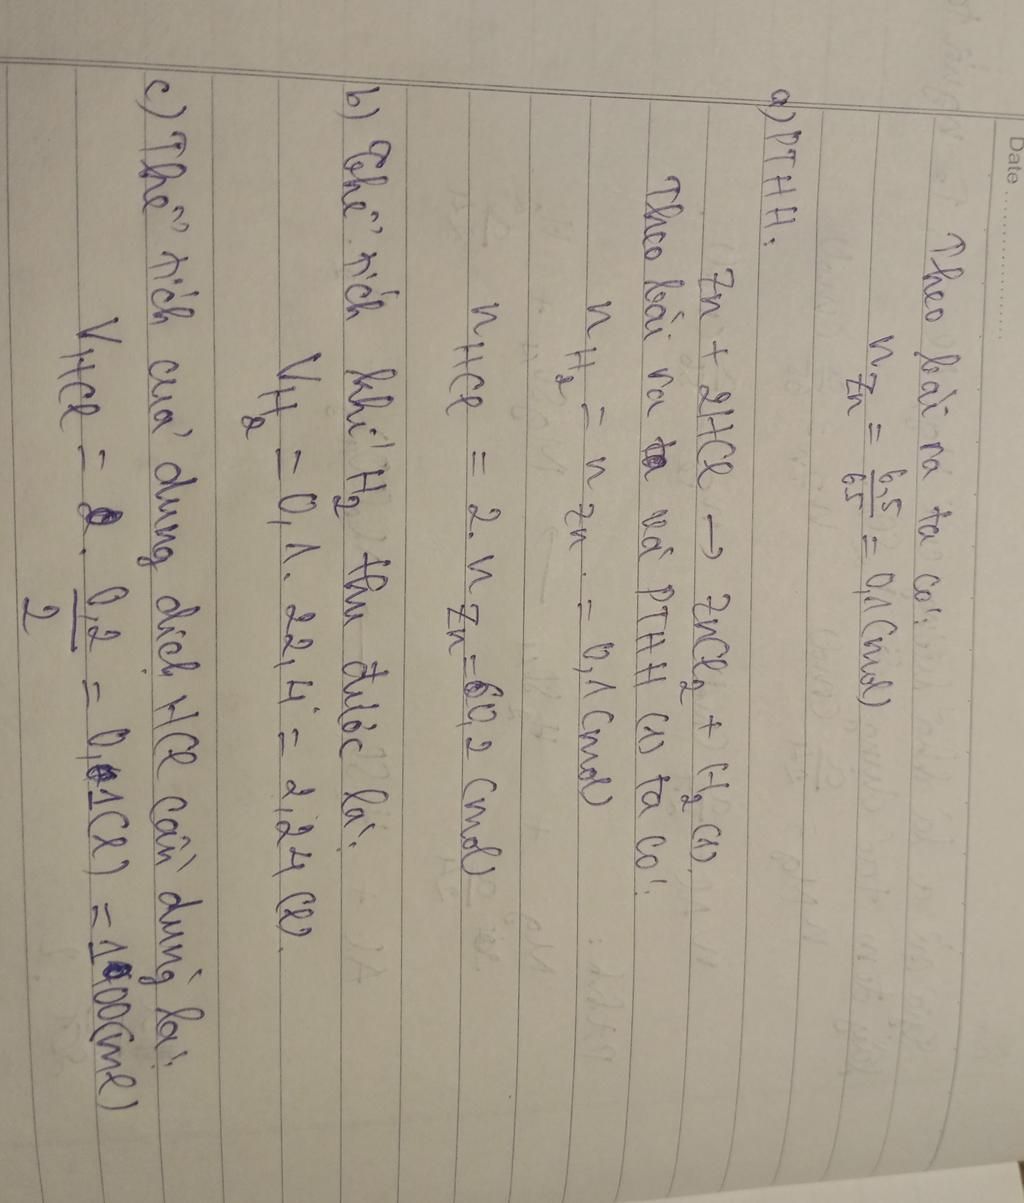 Date ..................
Theo bài ra ta có:
n Zn = 6,5/65 = 0,1 (mol)
a) PTHH:
Zn + 2HCl → ZnCl₂ + H₂ (1)
Theo bài ra ta và PTHH (1) ta có:
n H₂ = n Zn . = 0,1 (mol)
n HCl = 2. n Zn = 0,2 (mol)
b) Thể tích khí H₂ thu được là:
V H₂ = 0,1. 22,4 = 2,24 (l).
c) Thể tích của dung dịch HCl cần dùng là:
V HCl = 0,2/2 = 0,1 (l) = 100 (ml)